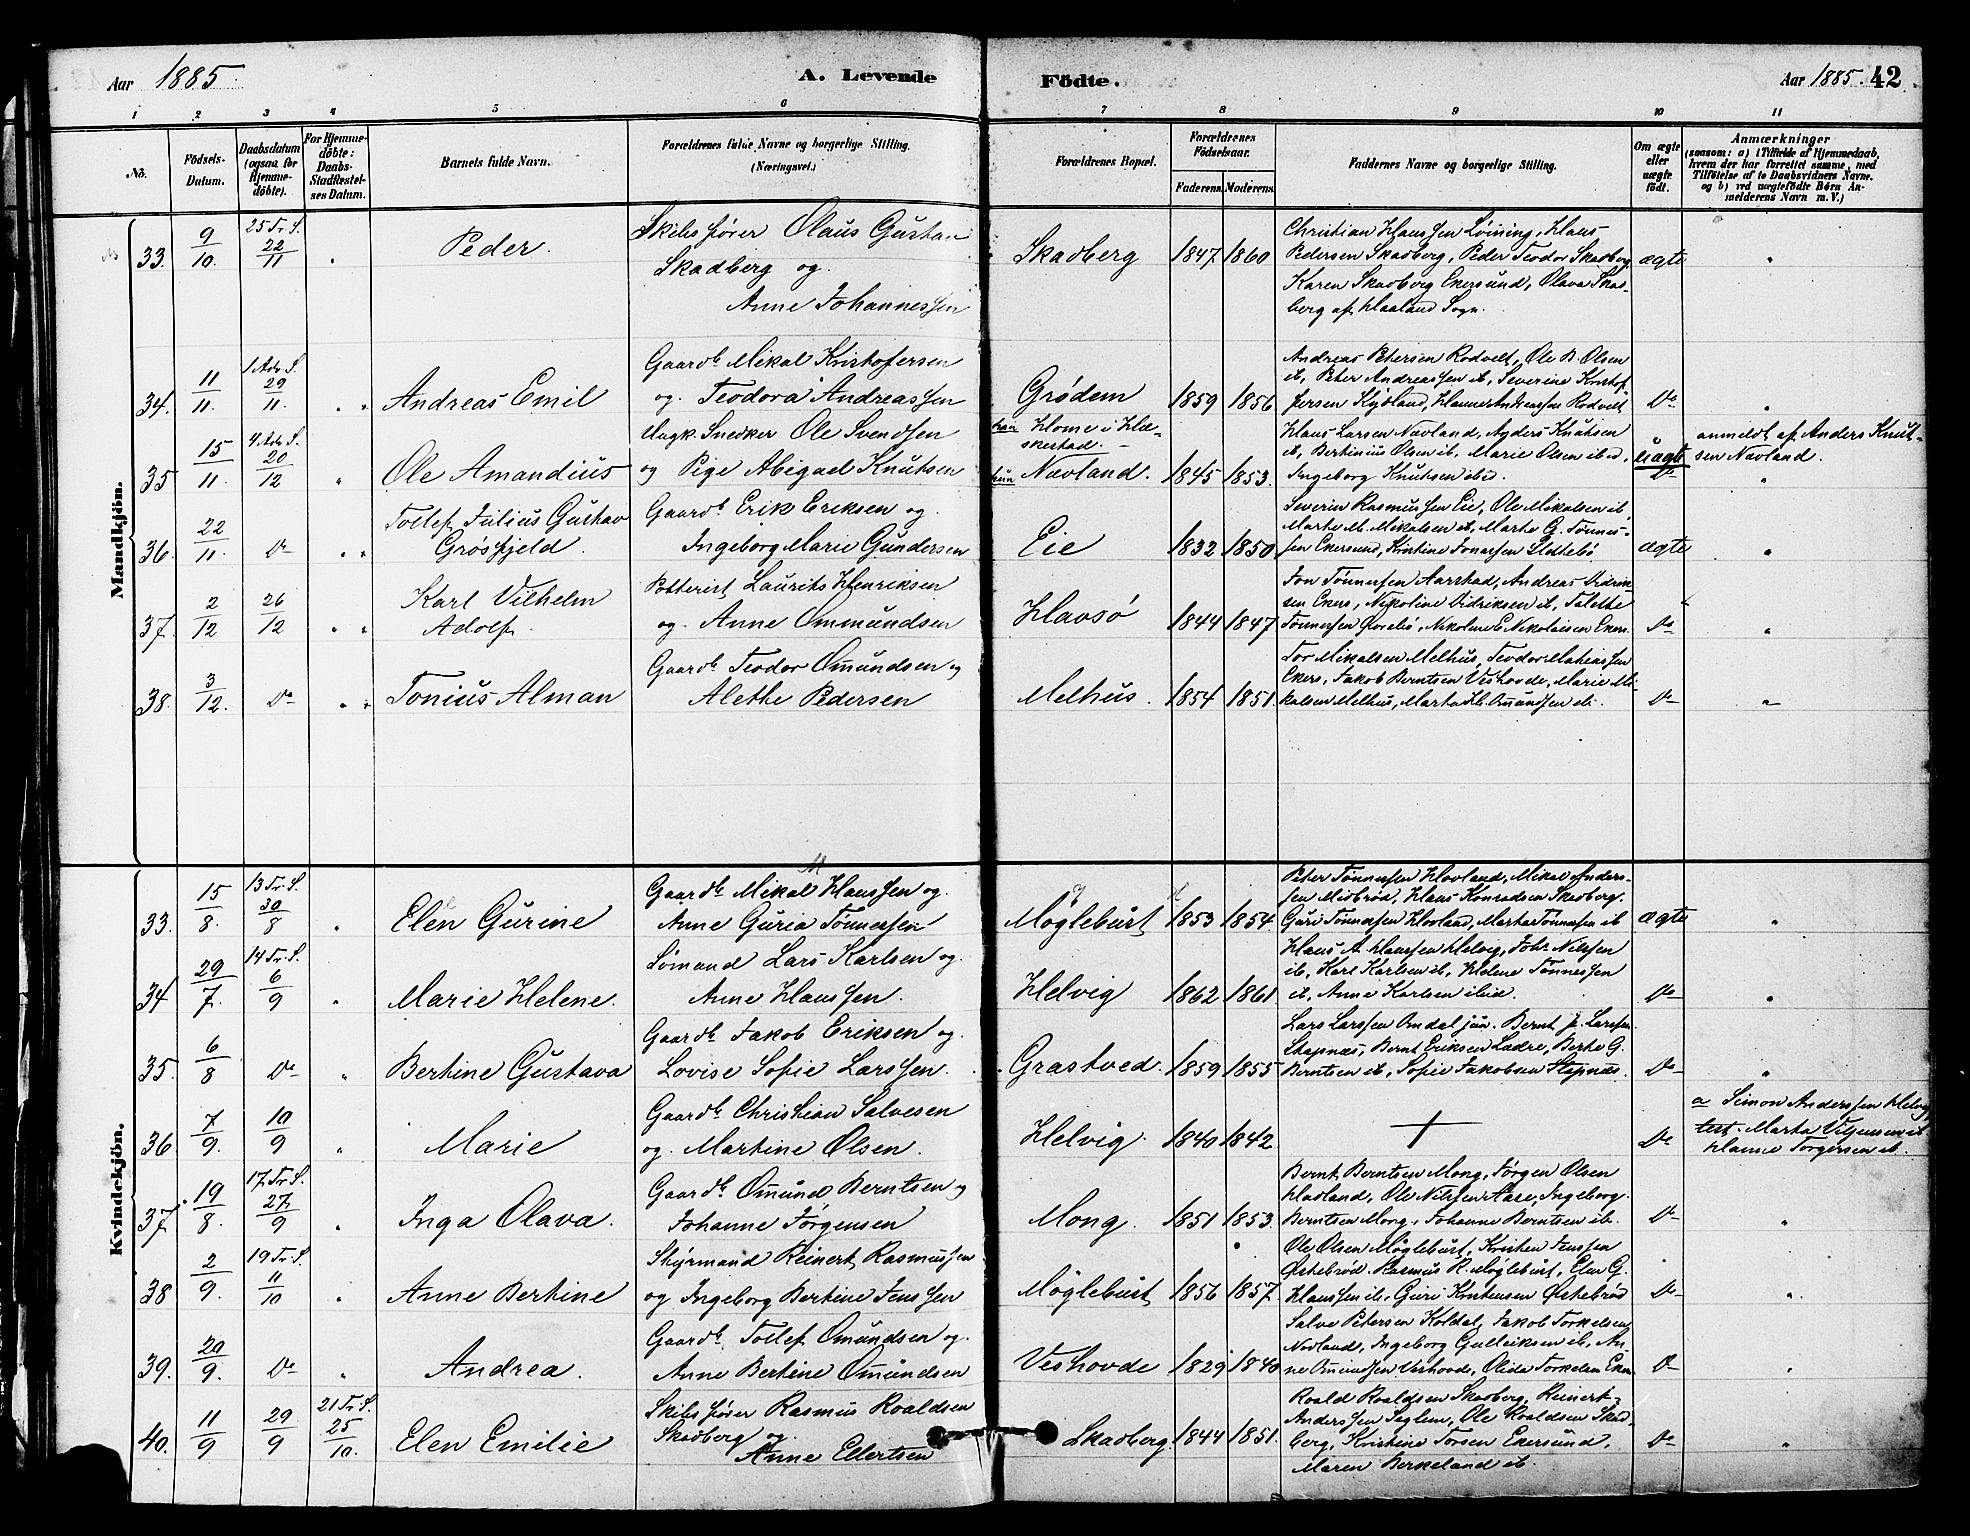 Aar 1885. A. Levende Födte. Aar 1885. 42
1 2 3 4 5 6 7 8 9 10 11
No. Födsels-Datum. Daabsdatum (ogsaa for Hjemmedöbte). For Hjemmedöbte: Daabs-Stadfæstelses Datum. Barnets fulde Navn. Forældrenes fulde Navne og borgerlige Stilling. (Næringsvei.) Forældrenes Bopæl. Forældrenes Födselsaar. Faderens. Moderens. Faddernes Navne og borgerlige Stilling. Om ægte eller uægte födt. Anmærkninger (saasom: a) i Tilfælde af Hjemmedaab, hvem der har forrettet samme, med Tilföielse af to Daabsvidners Navne, og b) ved uægtefödte Börn Anmelderens Navn m. V.)
Mandkjön.
33. 9/10 25 Tr. S. 22/11 Peder.
Skibsfører Olaus Gustav
Skadberg og
Anne Johannessen
Skadberg 1847 1860
Christian Hanssen Løining, Hans
Pedersen Skadberg, Peder Teodor Skadberg
Karen Skadberg Ekersund, Olava Skad-
berg af Haaland Sogn.
ægte
34. 11/11. 1 Adv. S. 29/11. Andreas Emil
Gaardb. Mikal Kristofersen
og Teodora Andreassen
Grødem 1859 1856
Andreas Petersen Rodvelt, Ole B. Olsen
ib, Peter Andreassen ib, Severine Kristof-
fersen Kydland, Hanne Andreassen Rodvelt
Do
35 15/11. 4 Adv. S. 20/12 Ole Amandius
Ungk. Snedker Ole Svendsen
og Pige Abigael Knutsen
han Home i He-
skestad.
hun Navland. 1845 1853.
Hans Larsen Navland, Anders Knutsen
ib, Bertinius Olsen ib, Marie Olsen ibd,
Ingeborg Knutsen ibd.
uægte
anmeldt af Anders Knut-
sen Navland.
36. 22/11. Do Tollef Julius Gustav
Grøsfjeld.
Gaardb. Erik Eriksen og
Ingeborg Marie Gundersen
Eie 1832 1850
Severin Rasmussen Eie, Ole Mikalsen ib
Marte M. Mikalsen ib, Marte G. Tønnes-
sen Ekersund, Kristine Jonassen Slettebø
ægte
37. 2/12 26/12 Karl Vilhelm
Adolf.
Potterist Laurits Henriksen
og Anne Ommundsen
Havsø 1844 1847
Jon Tønnessen Aarstad, Andreas Didrik-
sen Ekers, Nikoline Didriksen ib, Talette
Tønnessen, Nikoline E. Nikolaisen Ekers.
Do
38. 3/12. Do Tonius Alman
Gaardb. Teodor Omundsen og
Alethe Pedersen
Melhus. 1854 1851.
Tor Mikalsen Melhus, Teodor Mathiassen
Ekers, Jakob Berntsen Veshovde, Marie Mi-
kalsen Melhus, Marta H. Omundsen ib.
Do
Kvindekjön.
33. 15/8. 13 Tr. S. 30/8 Elen Gurine
Gaardb. Mikal Hanssen og
Anne Guria Tønnessen
Møglebust 1853 1854
Peter Tønnessen Hovland, Mikal Anders-
sen Midbrød, Hans Konradsen Skadberg.
Guri Tønnessen Hovland, Marta Tønnessen ib
ægte
34 29/7. 14 Tr. S. 6/9 Marie Helene.
Sømand Lars Karlsen og
Anne Hanssen.
Helvig 1862 1861
Hans A. Hanssen Helvig, Johs Nilssen
ib, Karl Karlsen ib, Helene Tønnessen
ib, Anne Karlsen ibid.
Do
35. 6/8 Do Bertine Gustava
Gaardb. Jakob Eriksen og
Lovise Sofie Larssen.
Grastved. 1859 1855
Lars Larssen Omdal jun. Bernt J. Larssen
Stapnæs, Bernt Eriksen Ladre, Berte G.
Berntsen ib, Sofie Jakobsen Stapnæs.
Do
36 7/9. 10/9 Marie
Gaardb. Christian Salvesen
og Martine Olsen.
Helvig. 1840 1842.
+
Do
a Simon Anderssen Helvig
test. Marta
Hanne Torgersen ib.
37 19/8. 17 Tr. S. 27/9 Inga Olava.
Gaardb. Omund Berntsen og
Johanne Jørgensen
Mong. 1851 1853.
Bernt Berntsen Mong, Jørgen Olsen
Hadland, Ole Nilssen Aase, Ingeborg
Berntsen Mong, Johanne Berntsen ib.
Do
38 2/9. 19 Tr. S. 11/10 Anne Bertine
Styrmand Reinert Rasmussen
og Ingeborg Bertine Jenssen
Møglebust 1856 1857.
Ole Olsen Møglebust, Kristen Jenssen
Østebrød. Rasmus R. Møglebust, Elen G.
Hanssen ib, Guri Kristensen Østebrød
Do
39. 20/9. Do Andrea.
Gaardb. Tollef Omundsen og
Anne Bertine Omundsen
Veshovde 1829 1840
Salve Petersen Koldal, Jakob Torkelsen
Novland, Ingeborg Gulleiksen ib, An-
ne Omundsen Veshovde, Olida Torkelsen Eker.
Do
40. 11/9 29/9 21 Tr. S. 25/10. Elen Emilie
Skibsfører Rasmus Roaldsen
Skadberg og
Anne Ellertsen
Skadberg 1844 1851.
Roald Roaldsen Skadberg, Reinert
Anderssen Seglem, Ole Roaldsen Skad-
berg, Kristine Torsen Ekersund,
Maren Berkeland ib.
Do